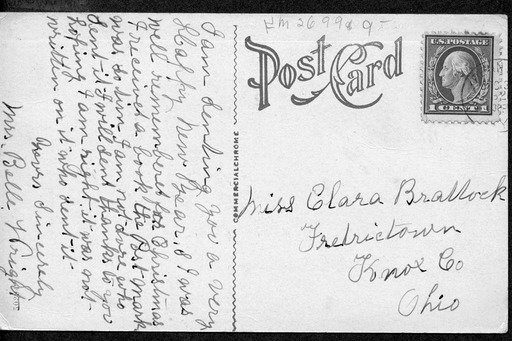 HM 26998 9-
Post Card
U.S. POSTAGE
1 CENT 1
COMMERCIALCHROME
I am sending you a very
Happy New Year. & I was
well remembered for Christmas
I received a book the Post mark
was so dim I am not sure who
sent it I will send thanks to you
hoping I am right it was not
written on it who sent it
Yours Sincerely
Mrs. Belle Wright
Miss Clara Brallock
Fredrictown
Knox Co
Ohio